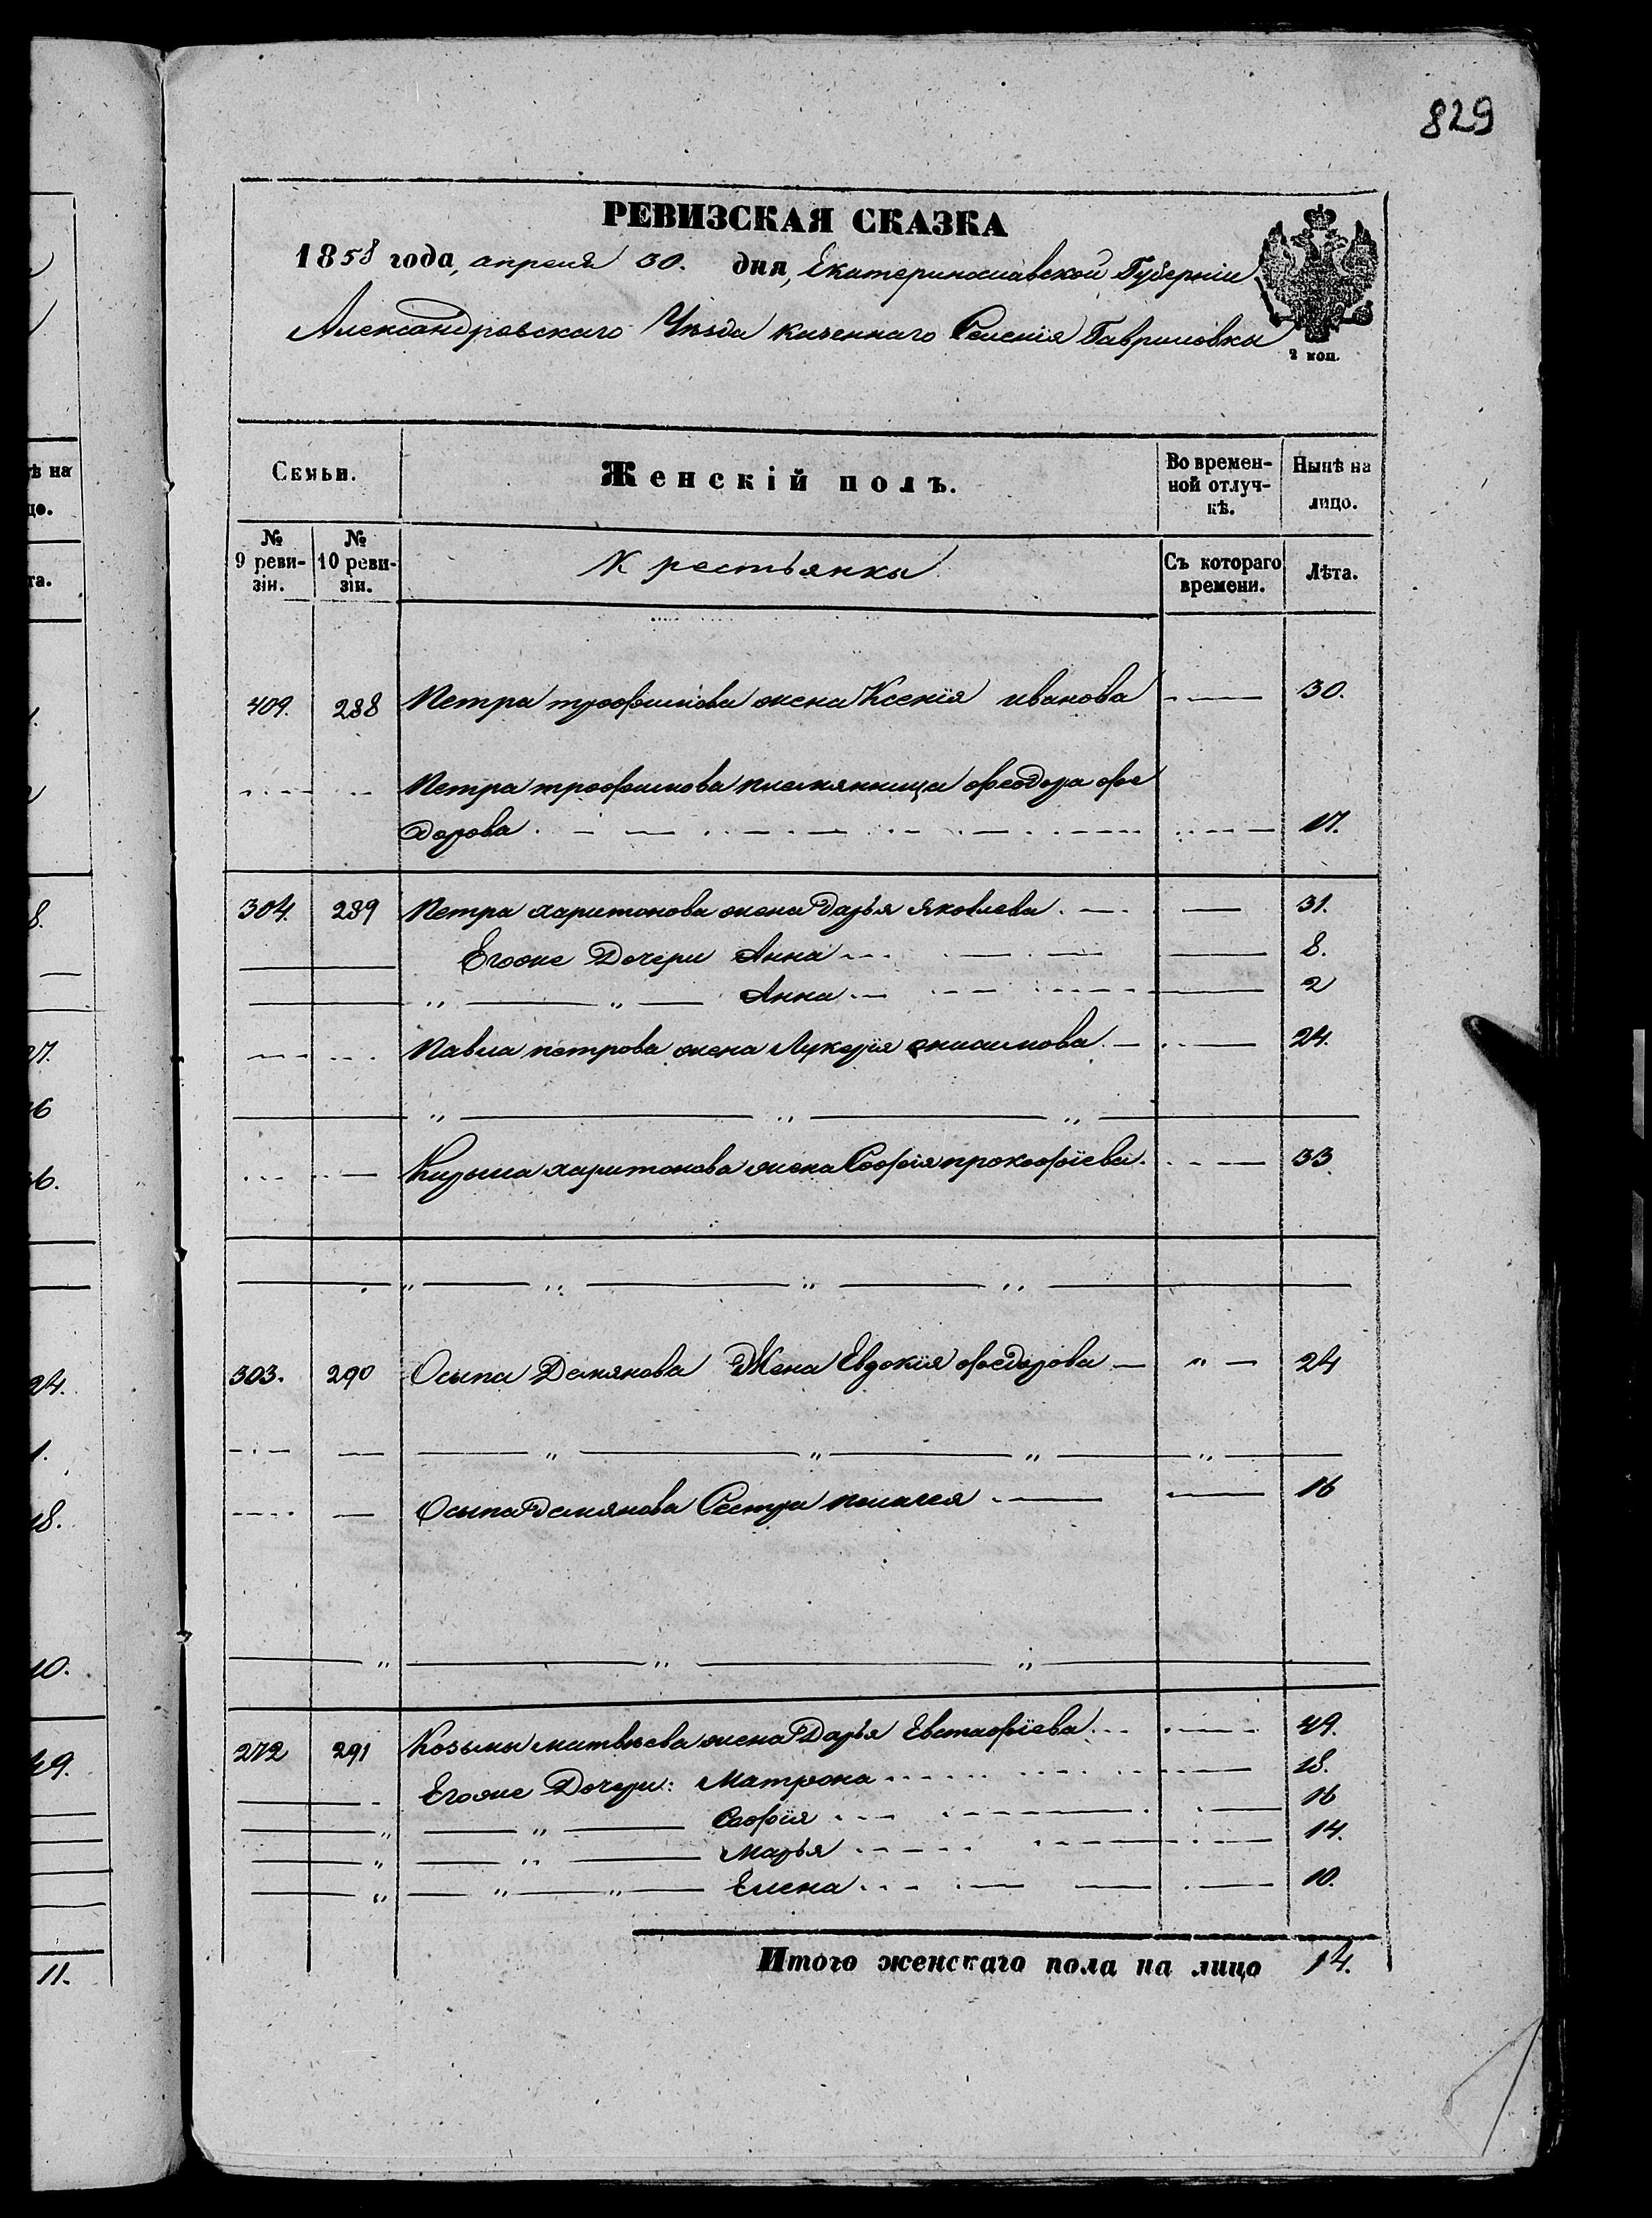 829
РЕВИЗСКАЯ СКАЗКА
1858 года, апреля 30. дня, Екатеринославской Губерніи
Александровскаго Уѣзда казеннаго Селенія Гавриловки
2 коп.
Семьи. Женскій полъ. Во времен- Нынѣ на
ной отлуч- лицо.
кѣ.
№ № Крестьянки Съ котораго Лѣта.
9 реви- 10 реви- времени.
зіи. зіи.
409. 288 Петра трофимова жена Ксенія иванова 30.
Петра трофимова племянница феодора фе
дорова 17.
304. 289 Петра харитонова жена Дарья Яковлева 31.
Егоже Дочери Анна 8.
" " Анна 2
Павла петрова жена Лукерія анисимова 24.
" " "
харитонова жена Софія прокофіева 33.
" " " "
303. 290 Осипа Демянова Жена Евдокія федорова " 24
" " " "
Осипа Демянова Сестра пелагея 16
" " "
272 291 Козьмы матвѣева жена Дарья Евстафіева 49.
Егоже Дочери: Матрона 18.
" " Софія 16
" " Марья 14.
" " " Елена 10.
Итого женскаго пола на лицо 14.
ѣ на
цо.
та.
8.
27.
16
36.
24.
1.
18.
10.
49.
11.